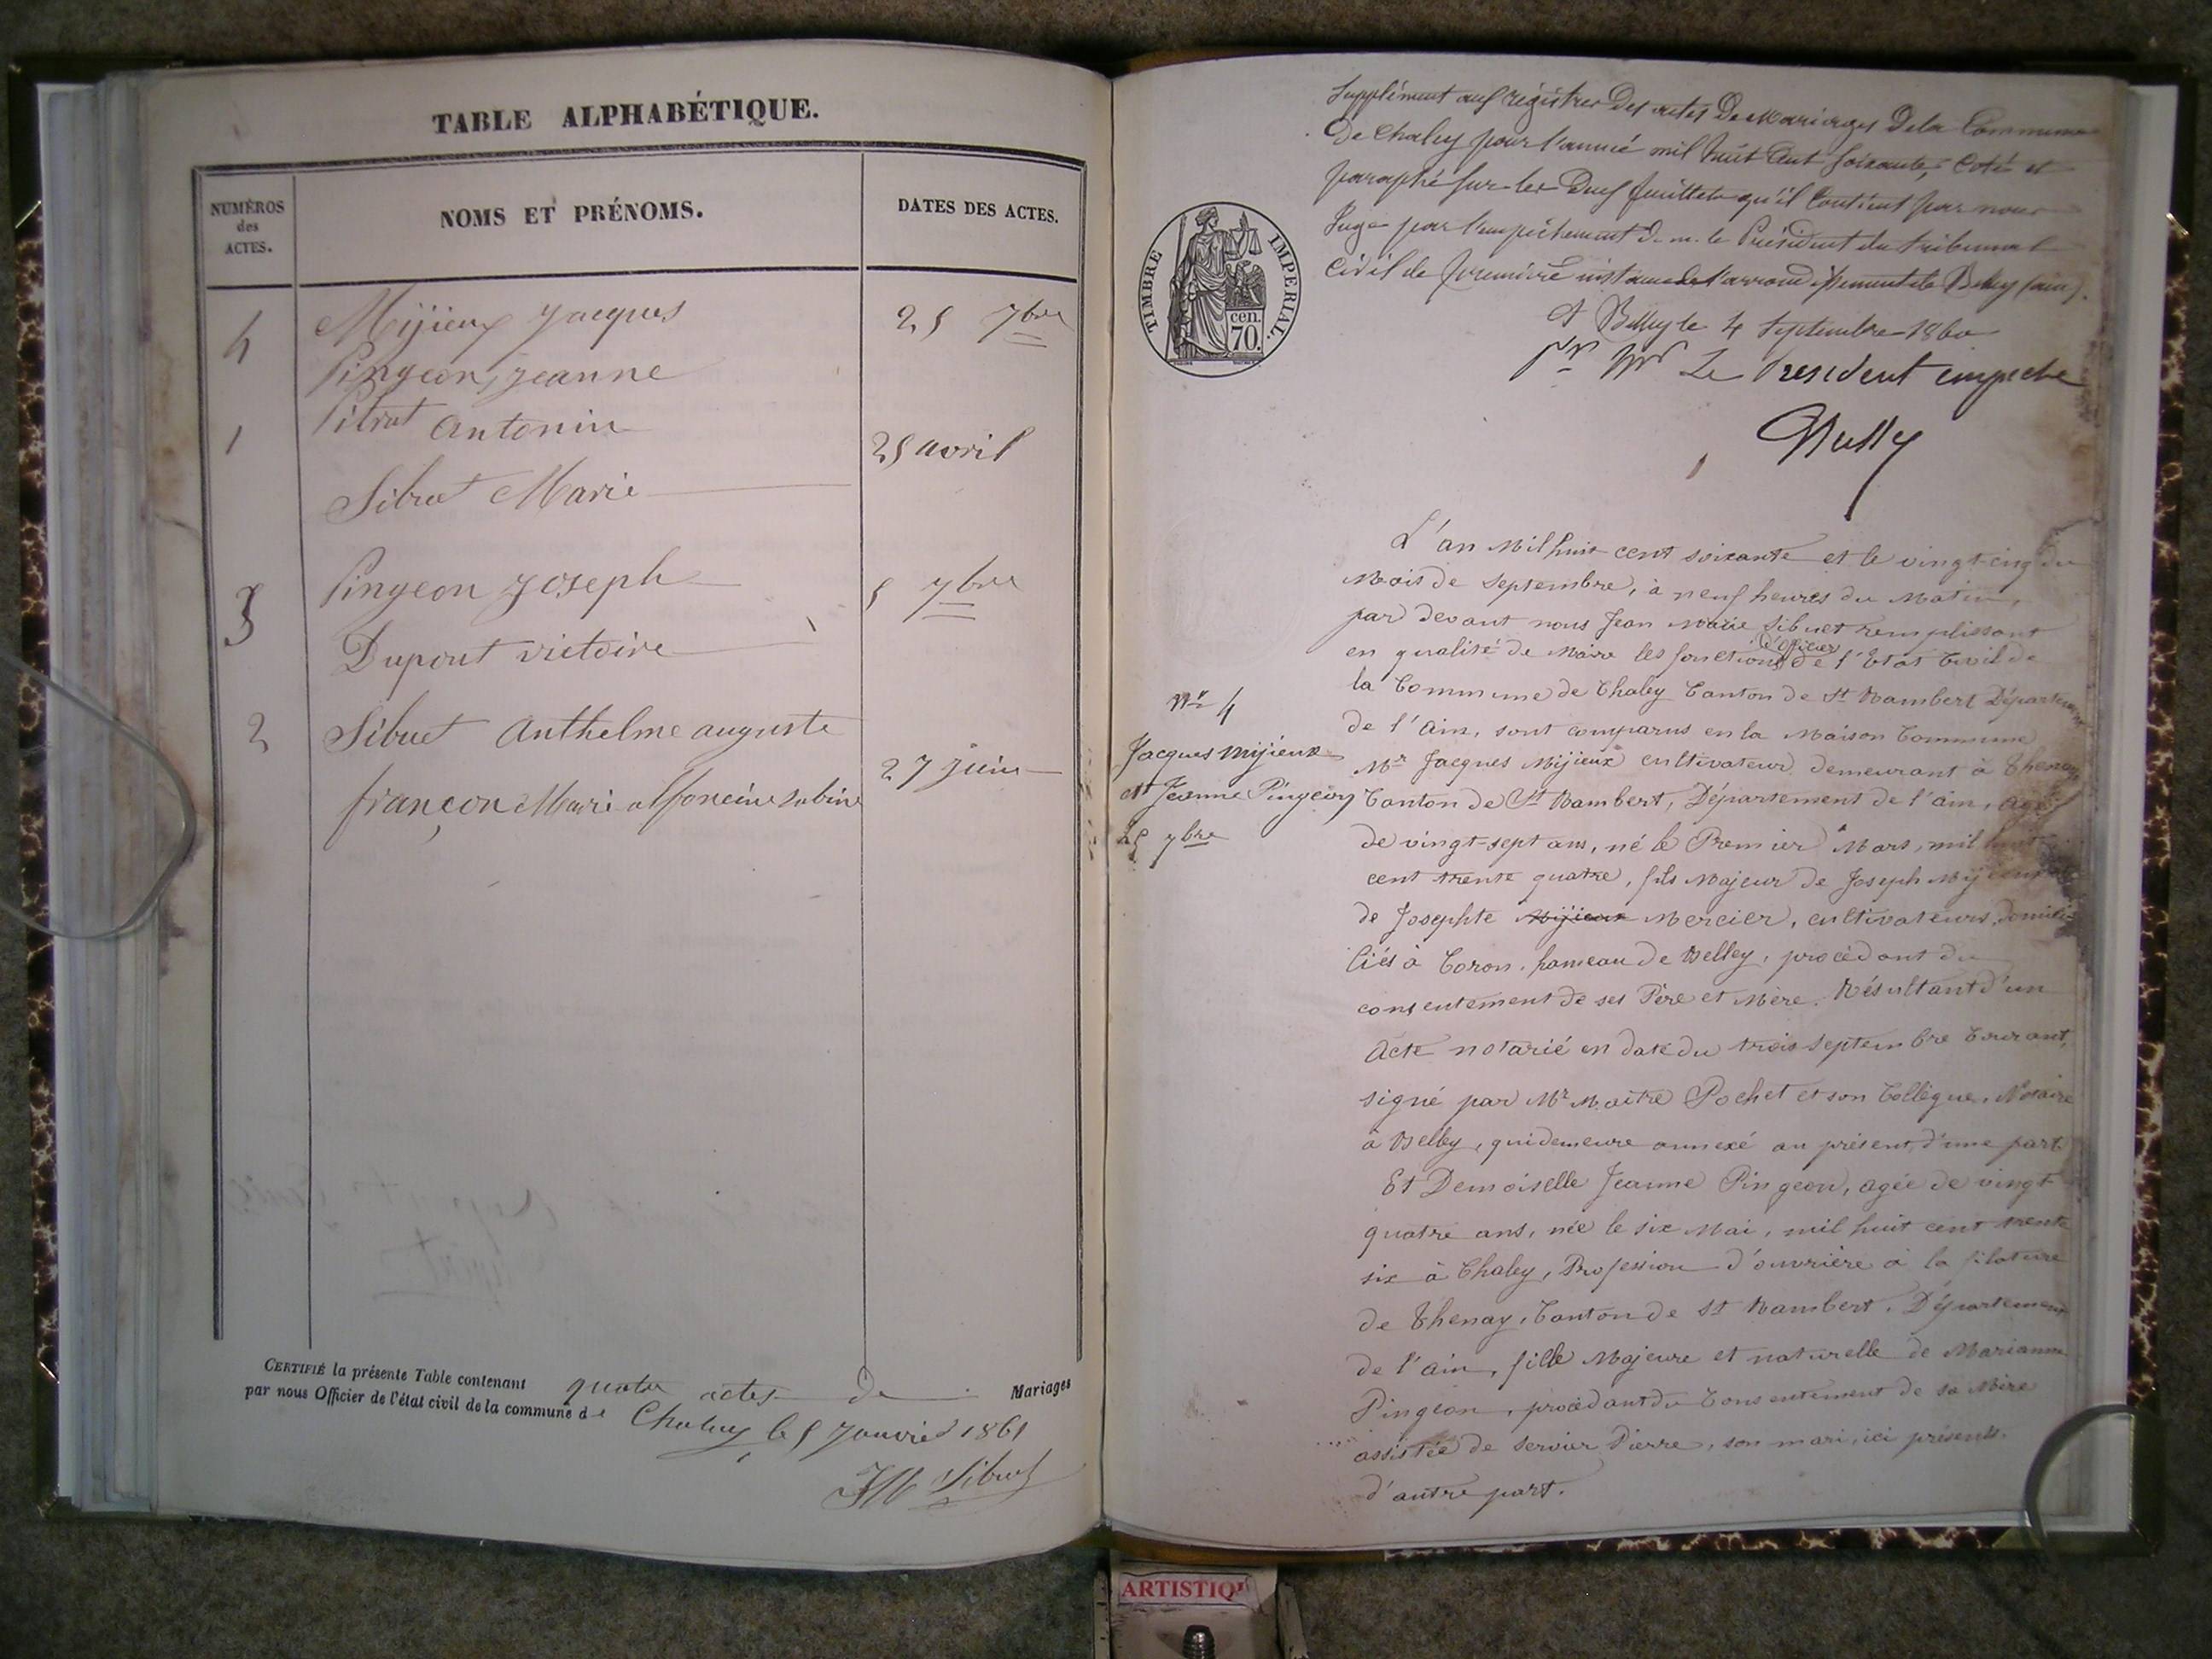 TABLE ALPHABÉTIQUE.
NUMÉROS des ACTES.
NOMS ET PRÉNOMS.
DATES DES ACTES.
4 Mijieux Jacques 25 7bre
Pingeon Jeanne
1 Pitrat Antonin 25 avril
Sibuet Marie
3 Pingeon Joseph 5 7bre
Dupont victoire
2 Sibuet Anthelme auguste 27 juin
françon Marie alfoncine sabine
CERTIFIÉ la présente Table contenant quatre actes de Mariages
par nous Officier de l'état civil de la commune de Chaley le 5 Janvier 1861
JM Sibuet
Supplément aux registres des actes de Mariages de la Commune
de Chaley pour l'année mil huit cent soixante, coté et
paraphé sur les deux feuillets qu'il contient par nous
Juge par l'empêchement de m. le Président du tribunal
civil de première instance de l'arrondissement de Belley (ain).
A Belley le 4 Septembre 1860
Pr Mr Le President empeché
TIMBRE IMPERIAL.
cen. 70.
L'an Mil huit cent soixante et le vingt-cinq du
Mois de Septembre, à neuf heures du Matin,
par devant nous Jean Marie Sibuet remplissant
en qualité de Maire les fonctions d'Officier de l'Etat Civil de
la Commune de Chaley Canton de St Rambert Département
de l'Ain, sont comparus en la Maison Commune
Nº 4
Jacques Mijieux
et Jeanne Pingeon
25 7bre
Mr Jacques Mijieux cultivateur demeurant à Thenay
Canton de St Rambert, Département de l'ain, agé
de vingt-sept ans, né le Premier Mars, mil huit
cent trente quatre, fils Majeur de Joseph Mijieux
de Josephte Mijieux Mercier, cultivateurs, domici-
liés à Coron, hameau de Belley, procédant du
consentement de ses Père et Mère. Résultant d'un
Acte notarié en date du trois septembre Courant,
signé par Mr Maître Pochet et son Collègue, Notaire
à Belley, qui demeure annexé au présent, d'une part.
Et Demoiselle Jeanne Pingeon, agée de vingt
quatre ans, née le six Mai, mil huit cent trente
six à Chaley, Profession d'ouvrière à la filature
de Thenay, Canton de St Rambert, Département
de l'ain, fille Majeure et naturelle de Marianne
Pingeon, procédant du Consentement de sa Mère
assistée de Servier Pierre, son mari, ici présents.
d'autre part.
ARTISTIQU